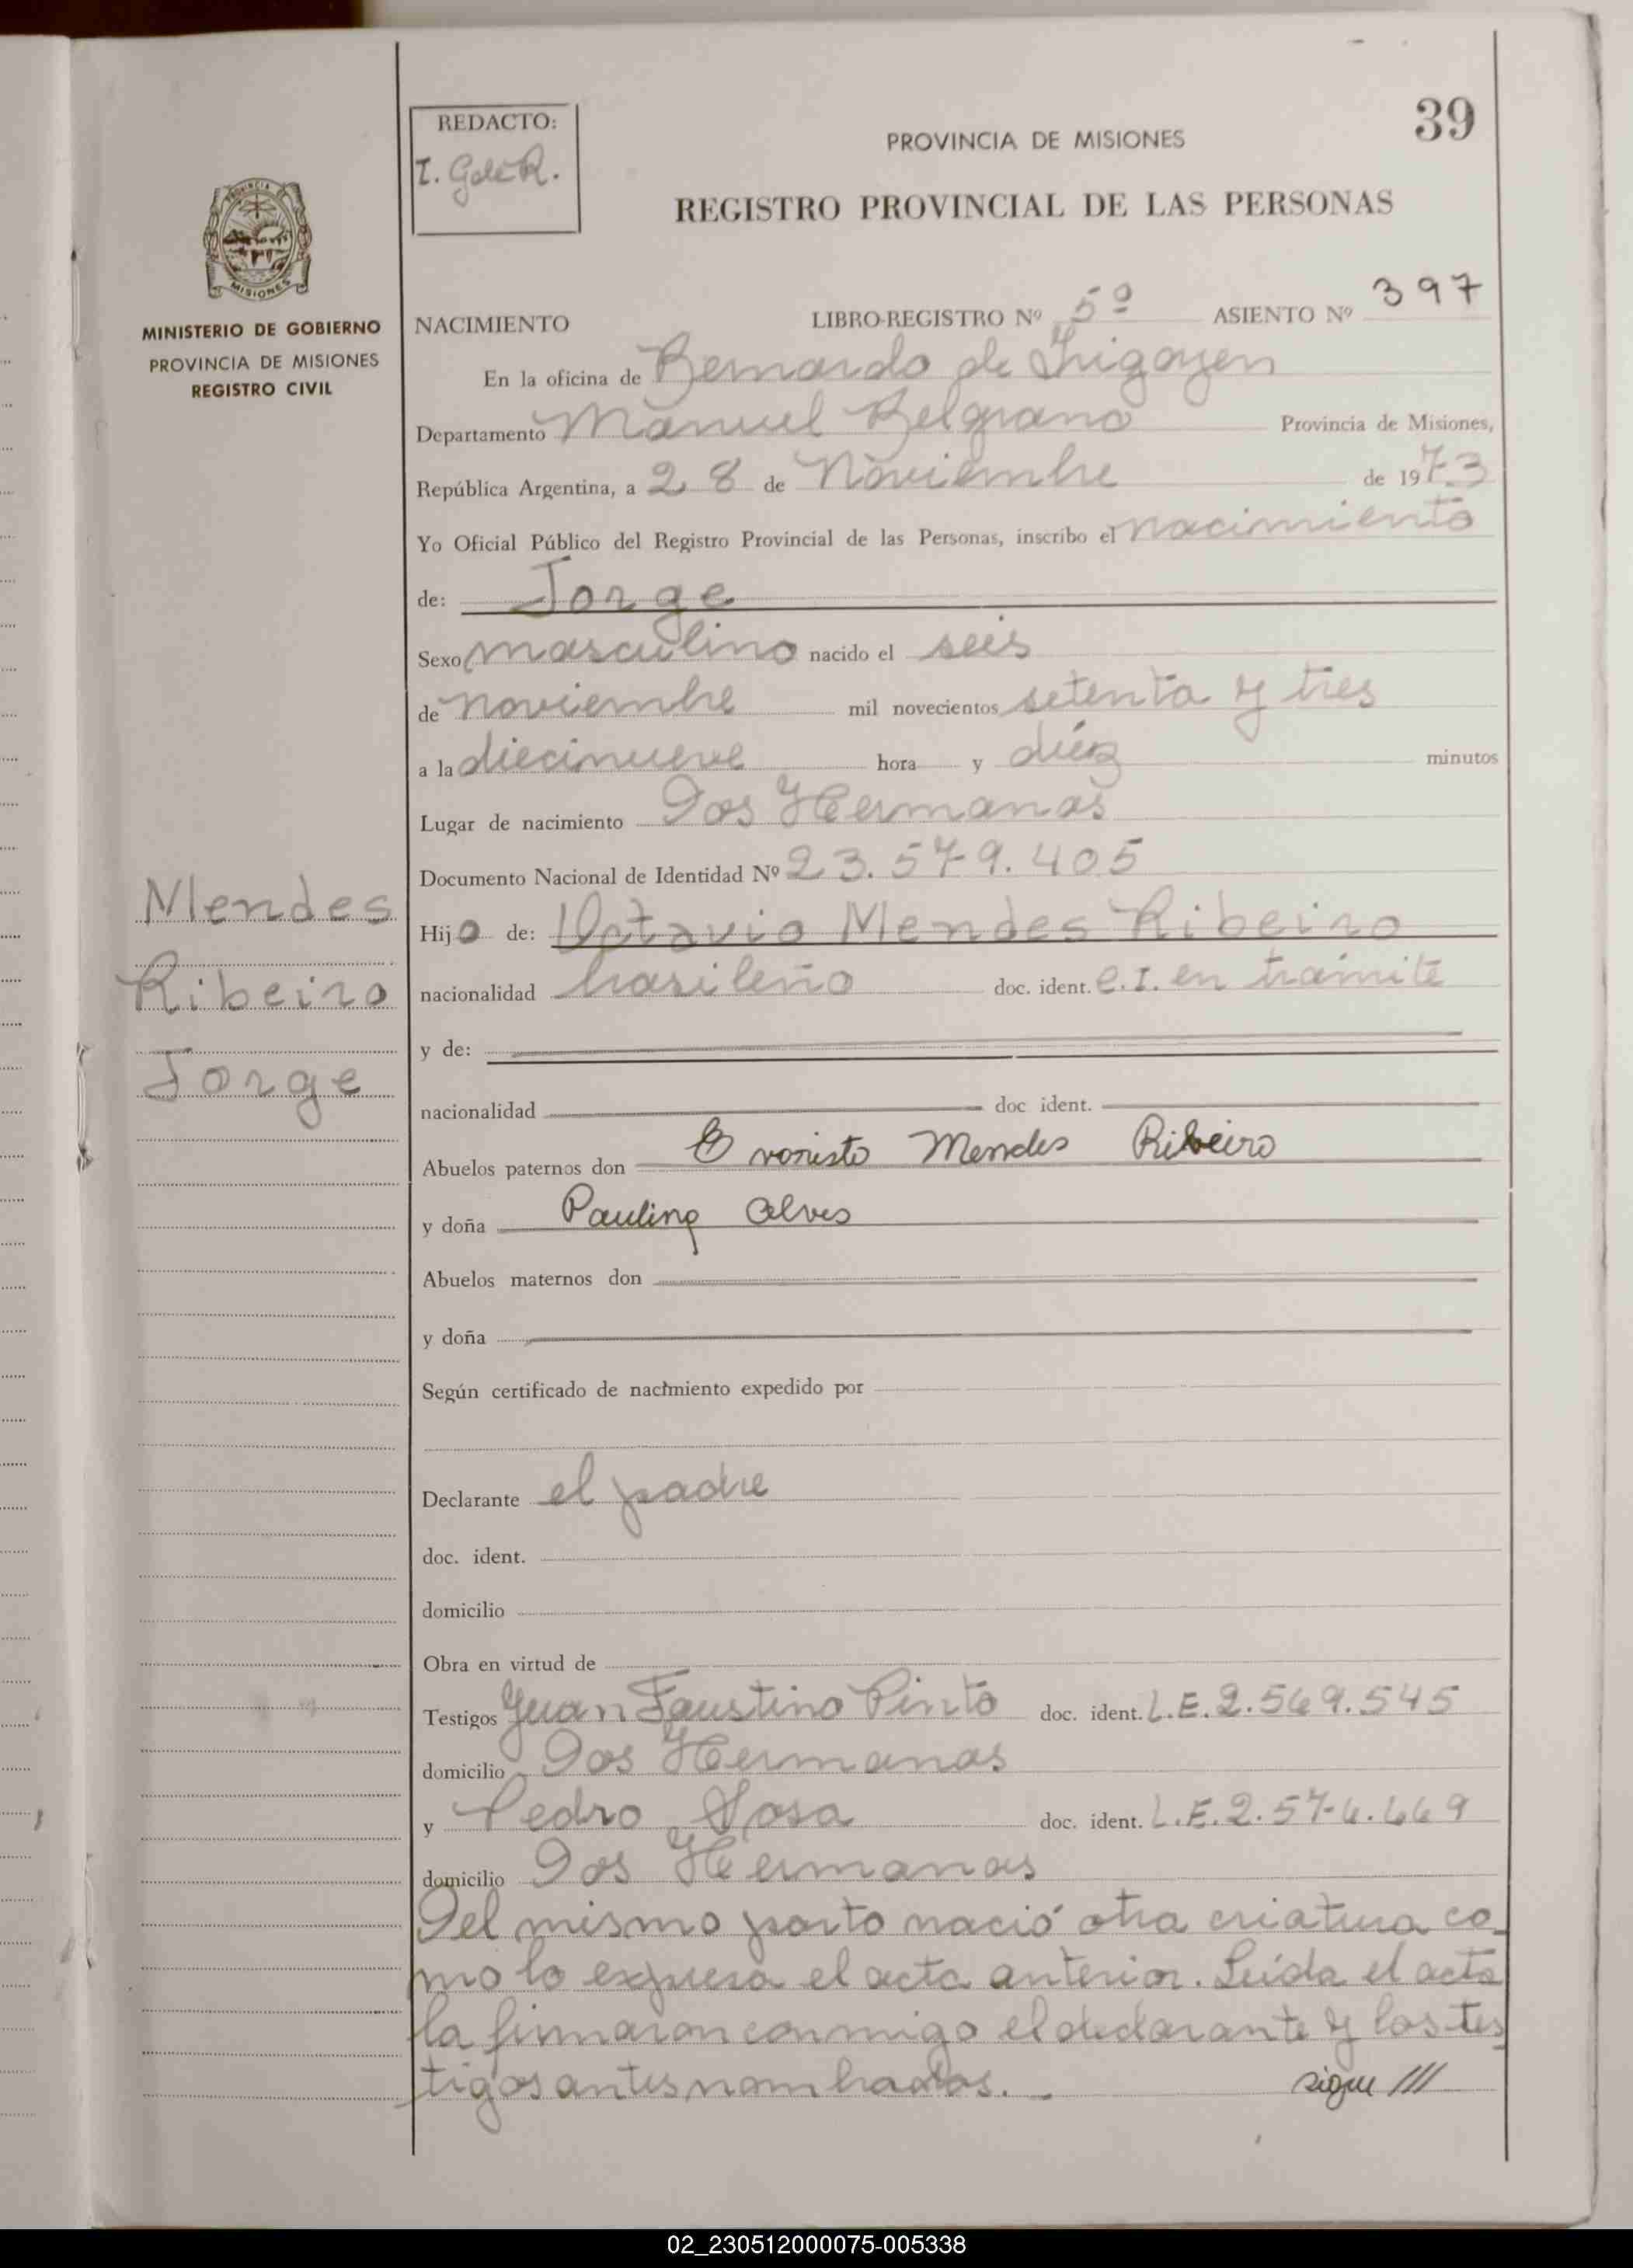 39
REDACTO:
PROVINCIA DE MISIONES
REGISTRO PROVINCIAL DE LAS PERSONAS
MISIONES
MINISTERIO DE GOBIERNO
PROVINCIA DE MISIONES
REGISTRO CIVIL
NACIMIENTO LIBRO-REGISTRO Nº 5º ASIENTO Nº 397
En la oficina de Bernardo de Irigoyen
Departamento Manuel Belgrano Provincia de Misiones,
República Argentina, a 28 de Noviembre de 1973
Yo Oficial Público del Registro Provincial de las Personas, inscribo el nacimiento
de: Jorge
Sexo masculino nacido el seis
de noviembre mil novecientos setenta y tres
a la diecinueve hora y diéz minutos
Lugar de nacimiento Dos Hermanas
Documento Nacional de Identidad Nº 23.579.405
Mendes
Ribeiro
Jorge
Hijo de: Octavio Mendes Ribeiro
nacionalidad brasileño doc. ident. C.I. en trámite
y de:
nacionalidad doc ident.
Abuelos paternos don Evaristo Mendes Ribeiro
y doña Paulina Alves
Abuelos maternos don
y doña
Según certificado de nacimiento expedido por
Declarante el padre
doc. ident.
domicilio
Obra en virtud de
Testigos Juan Faustino Pinto doc. ident. L.E.2.569.545
domicilio Dos Hermanas
y Pedro Sosa doc. ident. L.E.2.576.669
domicilio Dos Hermanas
Del mismo parto nació otra criatura co-
mo lo expresa el acta anterior. Leída el acta
la firmaron conmigo el declarante y los tes
tigos antes nombrados. - sigue ///
02_230512000075-005338